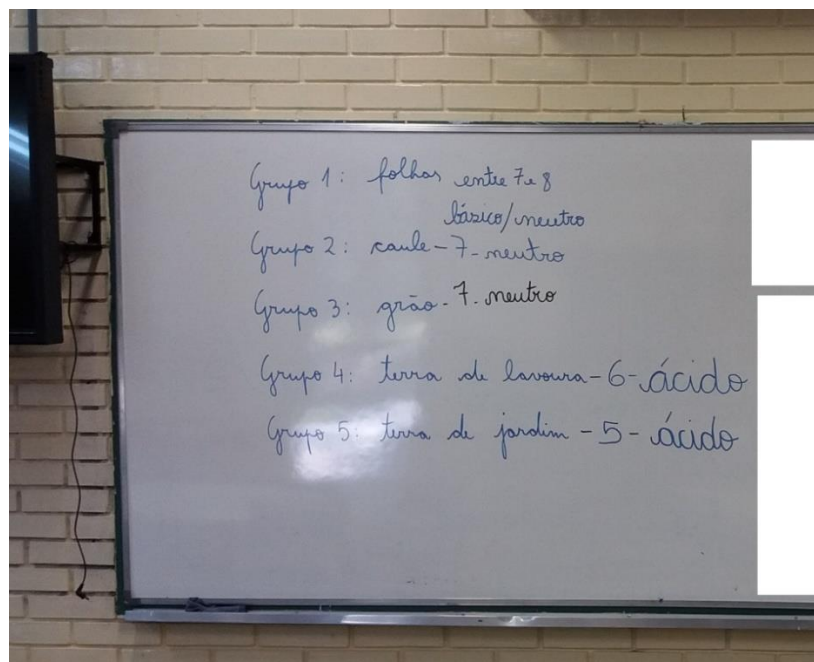 Grupo 1: folhas entre 7 e 8
básico/neutro
Grupo 2: caule - 7 - neutro
Grupo 3: grão - 7. neutro
Grupo 4: terra de lavoura - 6 - ácido
Grupo 5: terra de jardim - 5 - ácido